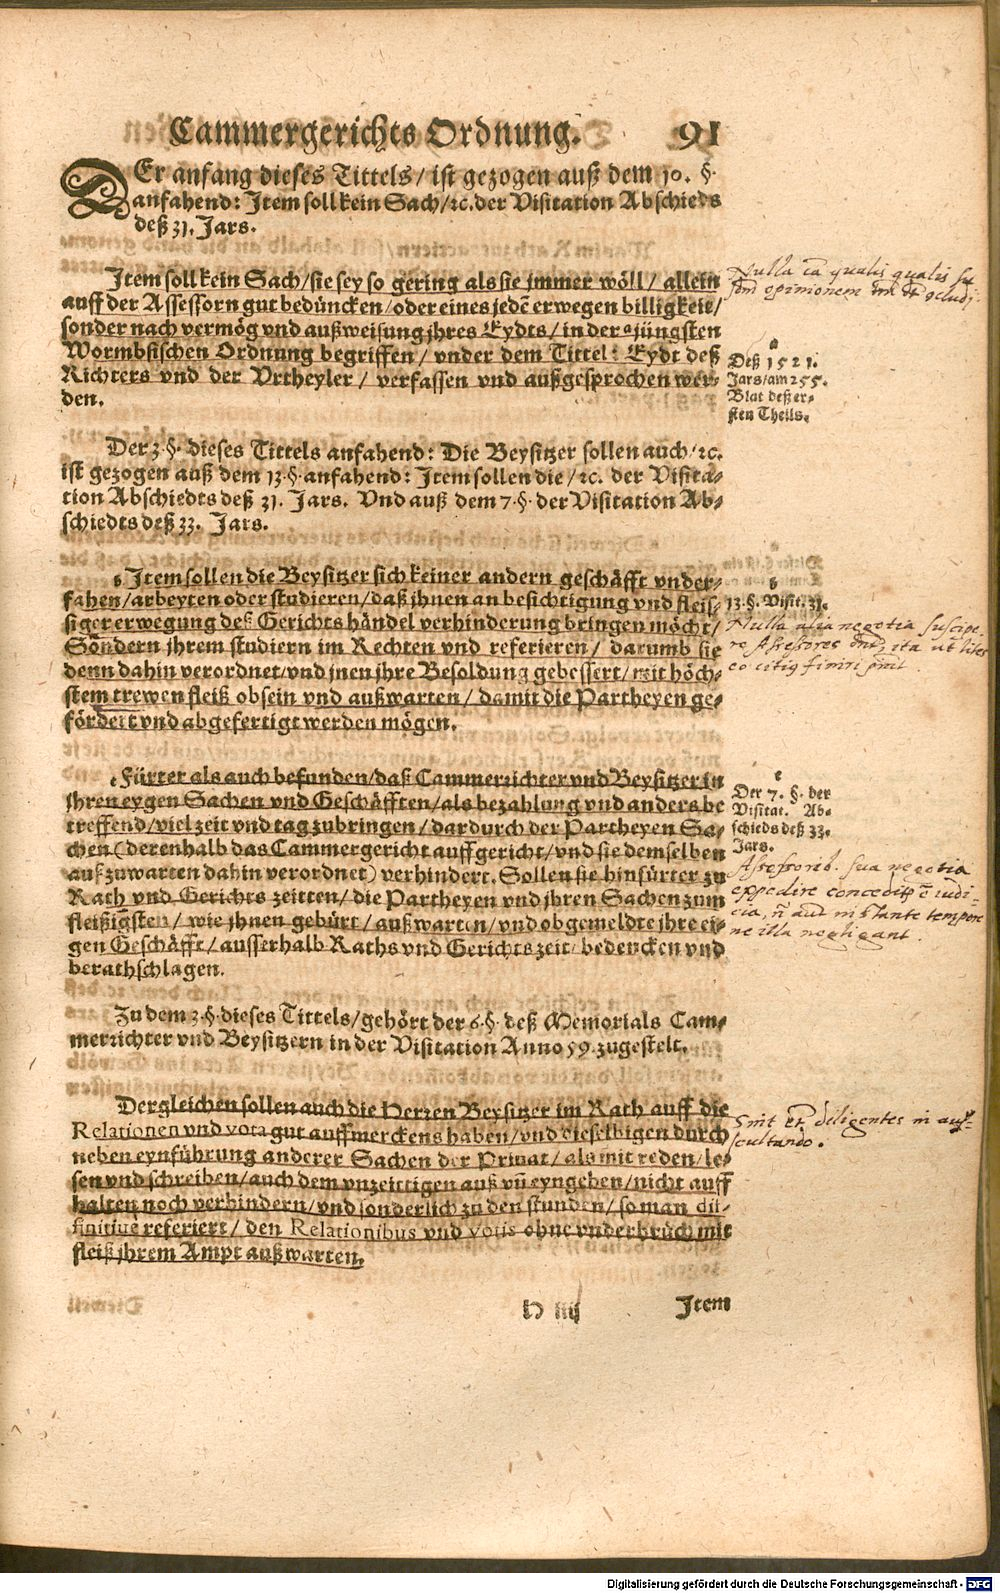 Cammergerichts Ordnung. 91
DEr anfang dieses Tittels / ist gezogen auß dem 10. §.
anfahend: Item soll kein Sach / ꝛc. der Visitation Abschieds
deß 31. Jars.
Item soll kein Sach / sie sey so gering als sie immer wöll / allein
auff der Assessorn gut bedüncken / oder eines jedẽ erwegen billigkeit /
sonder nach vermög vnd außweisung jhres Eydts / in der a jüngsten
Wormbsischen Ordnung begriffen / vnder dem Tittel: Eydt deß
Richters vnd der Vrtheyler / verfassen vnd außgesprochen wer-
den.
Nulla
qualis qualis
opinionem
a
Deß 1521.
Jars / am 255.
Blat deß er-
sten Theils.
Der 3. §. dieses Tittels anfahend: Die Beysitzer sollen auch / ꝛc.
ist gezogen auß dem 13. §. anfahend: Item sollen die / ꝛc. der Visita-
tion Abschiedts deß 31. Jars. Vnd auß dem 7. §. der Visitation Ab-
schiedts deß 33. Jars.
b Item sollen die Beysitzer sich keiner andern geschäfft vnder-
fahen / arbeyten oder studieren / daß jhnen an besichtigung vnd fleis-
siger erwegung deß Gerichts händel verhinderung bringen möcht /
Sondern jhrem studiern im Rechten vnd referieren / darumb sie
denn dahin verordnet / vnd jnen jhre Besoldung gebessert / mit höch-
stem trewen fleiß obsein vnd außwarten / damit die Partheyen ge-
fördert vnd abgefertigt werden mögen.
b
13. §. Visit. 31.
Nulla alia negotia suscipe-
re Assessores ita ut lites
eo citiꝰ finiri
c Fürter als auch befunden / daß Cammerrichter vnd Beysitzer in
jhren eygen Sachen vnd Geschäfften / als bezahlung vnd anders be
treffend / viel zeit vnd tag zubringen / dardurch der Partheyen Sa-
chen (derenhalb das Cammergericht auffgericht / vnd sie demselben
außzuwarten dahin verordnet) verhindert. Sollen sie hinfürter zu
Rath vnd Gerichts zeitten / die Partheyen vnd jhren Sachen zum
fleißigsten / wie jhnen gebürt / außwarten / vnd obgemeldte jhre ei-
gen Geschäfft / ausserhalb Raths vnd Gerichts zeit / bedencken vnd
berathschlagen.
c
Der 7. §. der
Visitat. Ab-
schieds deß 33.
Jars.
Assessorib. sua negotia
expedire
tempore
ne illa negligant.
Zu dem 3. §. dieses Tittels / gehört der 6. §. deß Memorials Cam-
merrichter vnd Beysitzern in der Visitation Anno 59. zugestelt.
Dergleichen sollen auch die Herren Beysitzer im Rath auff die
Relationen vnd vota gut auffmerckens haben / vnd dieselbigen durch
neben eynführung anderer Sachen der Priuat / als mit reden / le-
sen vnd schreiben / auch dem vnzeittigen auß vñ eyngehen / nicht auff
halten noch verhindern / vnd sonderlich zu den stunden / so man dif-
finitiue referiert / den Relationibus vnd votis ohne vnderbruch mit
fleiß jhrem Ampt außwarten.
Sint diligentes in aus-
cultando.
H iiij Item
Digitalisierung gefördert durch die Deutsche Forschungsgemeinschaft - DFG